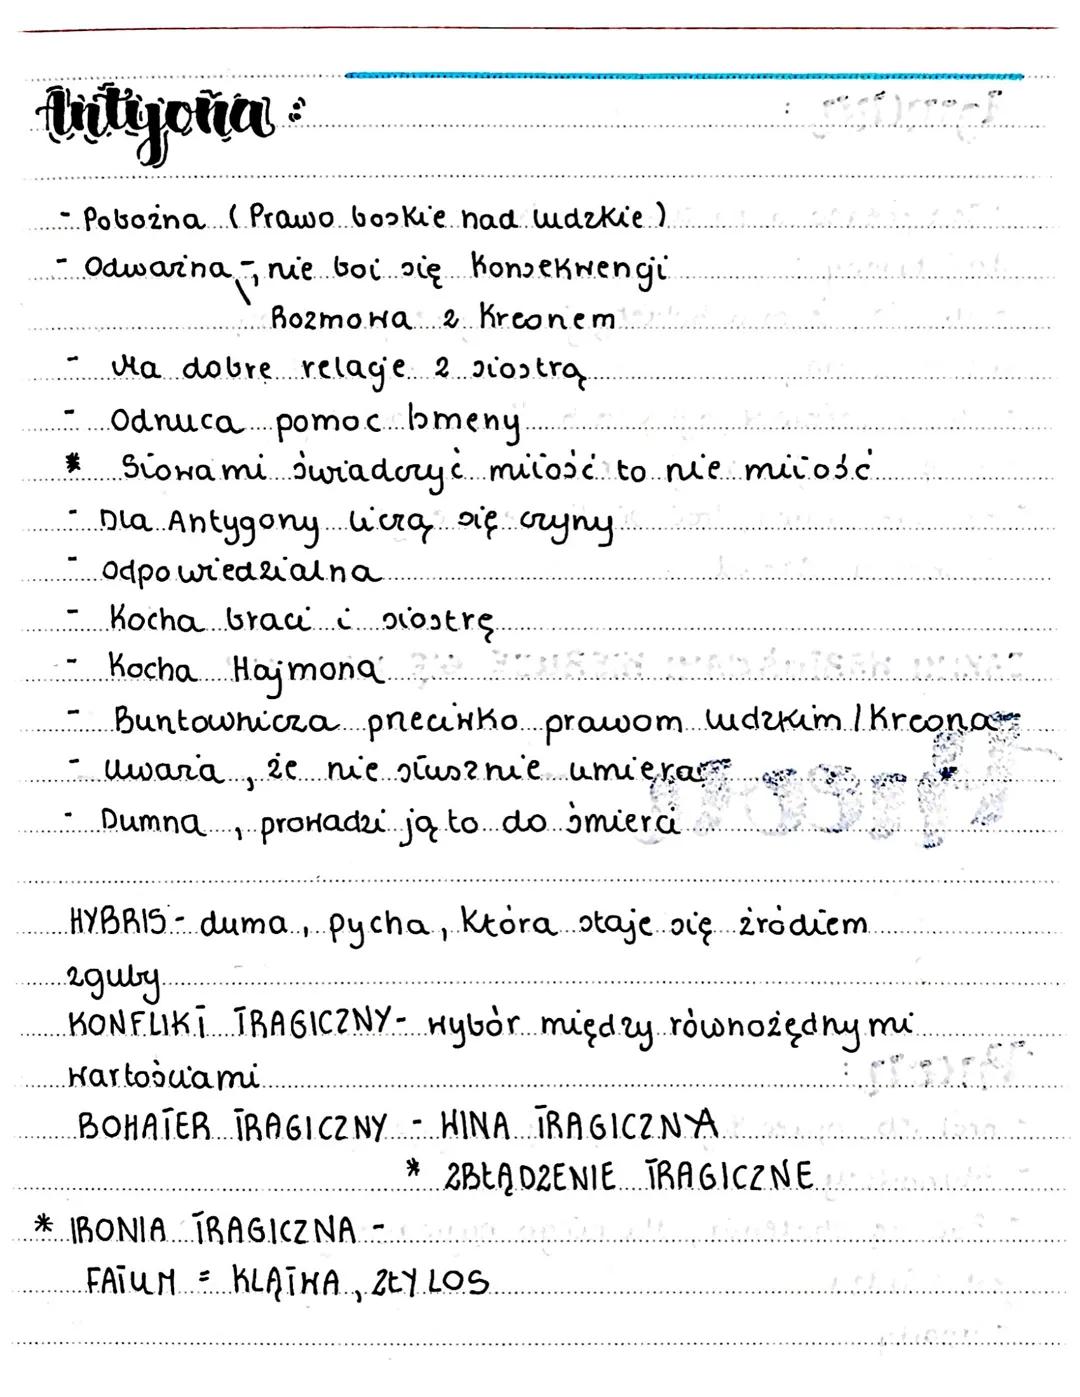 Antygona :
- Pobożna ( Prawo boskie nad ludzkie )
- Odważna - nie boi się konsekwencji
\ Rozmowa z Kreonem
- Ma dobre relacje z siostrą
- Odrzuca pomoc Ismeny
* Słowami świadczyć miłość to nie miłość
- Dla Antygony liczą się czyny
- Odpowiedzialna
- Kocha braci i siostrę
- Kocha Hajmona
- Buntownicza przeciwko prawom ludzkim / Kreona
- Uważa, że nie słusznie umiera
- Dumna, prowadzi ją to do śmierci
HYBRIS - duma, pycha, która staje się źródłem
zguby
KONFLIKT TRAGICZNY - wybór między równożędnymi
wartościami
BOHATER TRAGICZNY - WINA TRAGICZNA
* ZBŁĄDZENIE TRAGICZNE
* IRONIA TRAGICZNA -
FATUM = KLĄTWA, ZŁY LOS